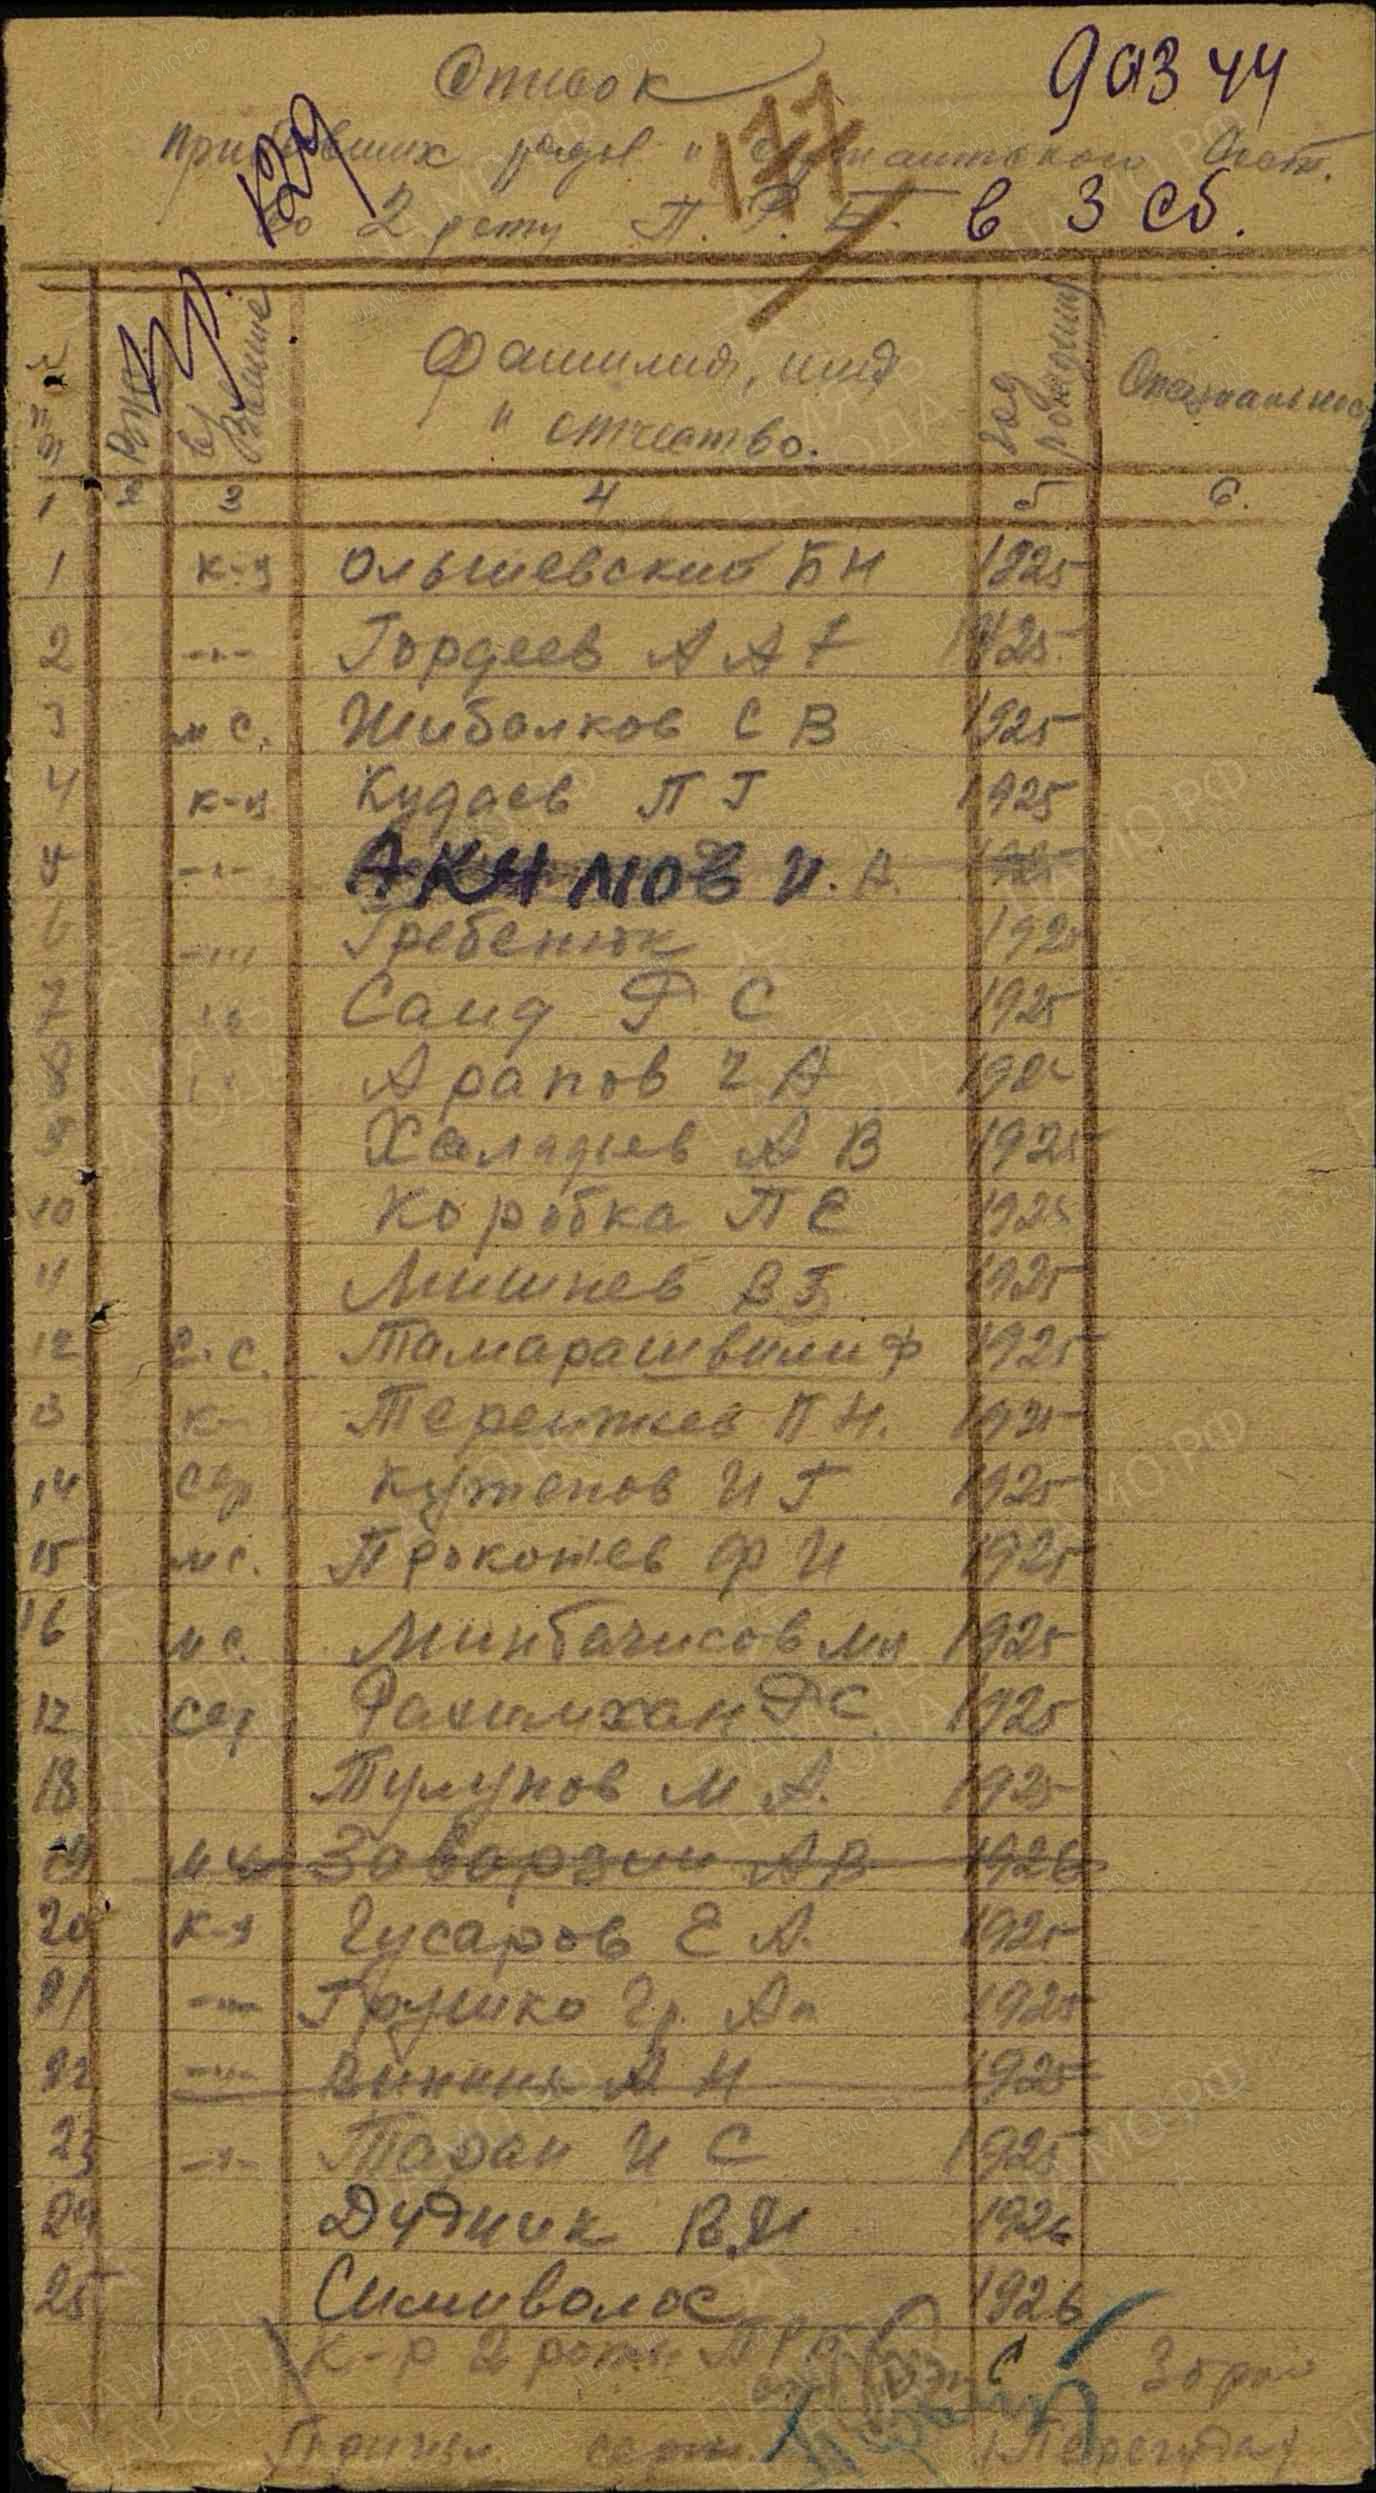 Список
9 03 44
129
177
Прибывших рядов и сержантского сост.
во 2 роту П.Р.Б. в 3 сб.
№ п п
В/Звание
Фамилия, имя
и отчество.
Год рождения
Специальнос
1 2 3 4 5 6.
1 к-ц Ольшевский Б Н 1925
2 -"- Гордеев А А 1925
3 м с. Шибалков С В 1925
4 к-ц Кудаев П Г 1925
5 -"- АКИМОВ И. А.
6 -"- Гребенюк 1925
7 Саид Ф С 1925
8 Арапов Г А 1925
9 Халадиев А В 1925
10 Коробка П Е 1925
11 Мишнев В Г 1925
12 с. с. Тамарашвили Ф 1925
13 к- Терентьев П Н. 1925
14 сер Кутепов И Г 1925
15 м с. Прокопьев Ф И 1925
16 м с. Минбачисов 1925
17 сер Рахимхан Ф С 1925
18 Тулунов М А. 1925
19 м с Заварзин А В 1926
20 к-ц Гусаров Е А. 1925
21 -"- Грушко Гр. Ан 1925
22 -"- А Н 1925
23 -"- Таран И С 1925
24 Дудник В. И 1926
25 Сиволос 1926
К-р 2 роты ПРБ
Принял серж.